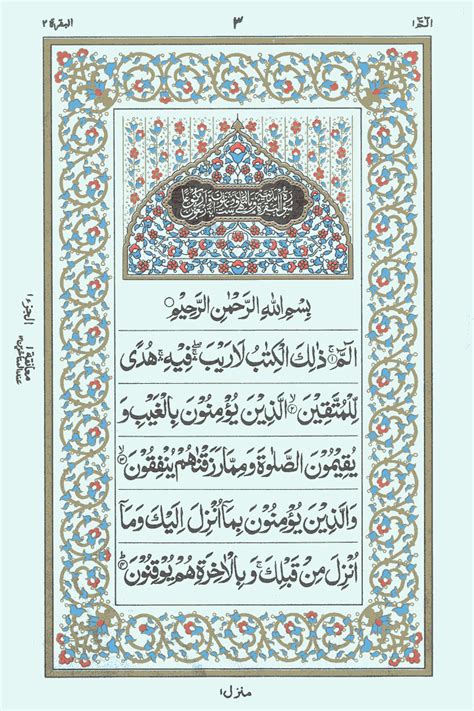 الٓمّٓ ۱
۳
البقرة ۲
بِسْمِ اللهِ الرَّحْمٰنِ الرَّحِيْمِ
الٓمّٓ ۚ﴿۱﴾ ذٰلِكَ الْكِتٰبُ لَا رَيْبَ ۛۖ فِيْهِ ۛۚ هُدًى
لِّلْمُتَّقِيْنَ ۙ﴿۲﴾ الَّذِيْنَ يُؤْمِنُوْنَ بِالْغَيْبِ وَ
يُقِيْمُوْنَ الصَّلٰوةَ وَمِمَّا رَزَقْنٰهُمْ يُنْفِقُوْنَ ۙ﴿۳﴾
وَالَّذِيْنَ يُؤْمِنُوْنَ بِمَاۤ اُنْزِلَ اِلَيْكَ وَمَاۤ
اُنْزِلَ مِنْ قَبْلِكَ ۚ وَبِالْاٰخِرَةِ هُمْ يُوْقِنُوْنَ ؕ﴿۴﴾
الجزء ۱
معانقة ۱
منزل ۱